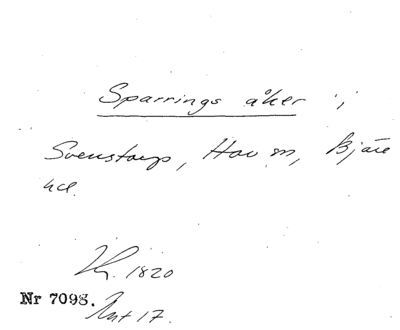 Sparrings åker i
Svenstorp, Hov sn, Bjäre
hd.
Lh. 1820
Nr 7098.
Akt 17.